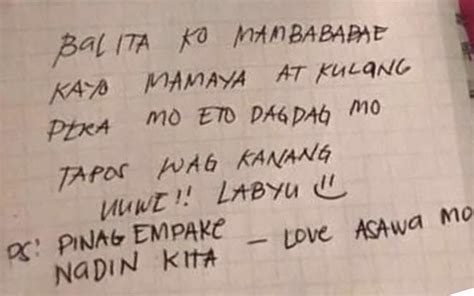 BALITA KO MAMBABABAE
KAYO MAMAYA AT KULANG
PERA MO ETO DAGDAG MO
TAPOS WAG KANANG
UUWE!! LABYU
PS: PINAG EMPAKE
NADIN KITA – LOVE ASAWA MO